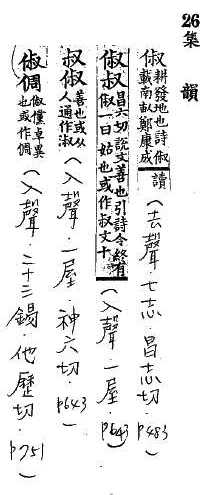 26集韻
俶 耕發地也詩俶載南畝鄭康成讀(去聲.七志.昌志切.p483)
俶俶 昌六切說文善也引詩令終有俶一曰始也或作俶文十(入聲.一屋.p643)
俶 善也或从人通作淑(入聲.一屋.神六切.p643)
(俶倜 俶儻卓異也或作倜(入聲.二十三錫.他歷切.p751)